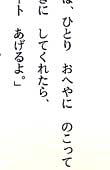 は、ひとり おへやに のこって
きに してくれたら、
ート あげるよ。」